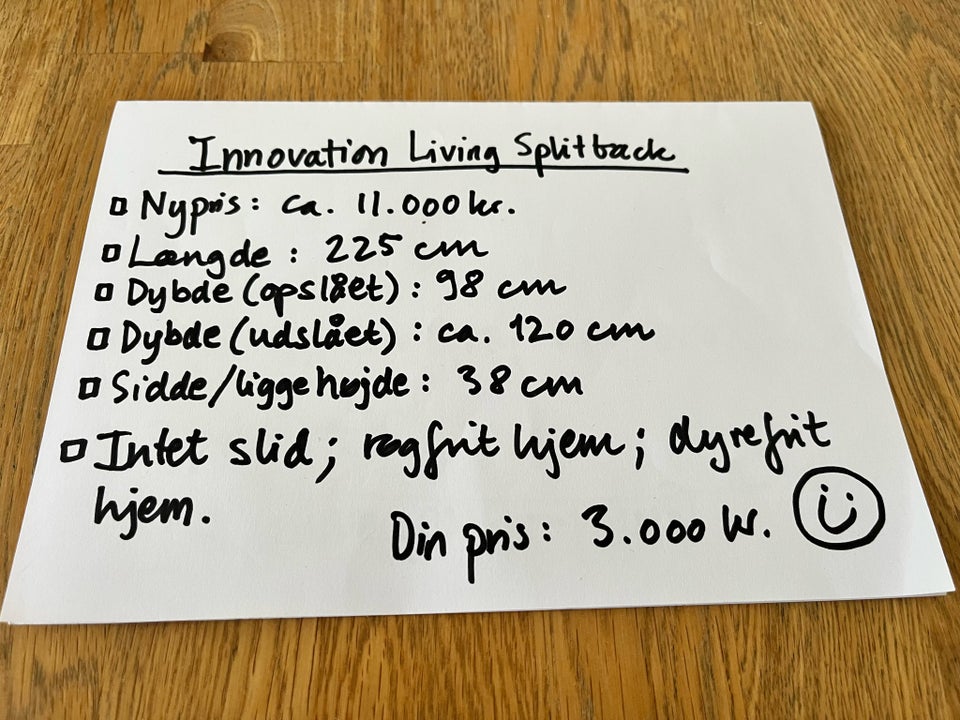 Innovation Living Splitback
Nypris: ca. 11.000 kr.
Længde: 225 cm
Dybde (opslået): 98 cm
Dybde (udslået): ca. 120 cm
Sidde/liggehøjde: 38 cm
Intet slid; røgfrit hjem; dyrefrit
hjem.
Din pris: 3.000 kr.